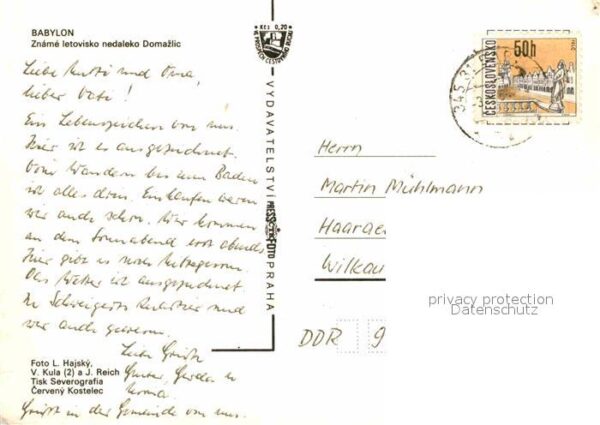 BABYLON
Známé letovisko nedaleko Domažlic
Liebe Mutti und Oma,
lieber Vati!
Ein Lebenszeichen von uns.
Hier ist es ausgezeichnet.
Vom Wandern bis zum Baden
ist alles drin. Einkaufen waren
wir auch schon. Wir kommen
an dem Sonnabend erst abends
Hier gibt es noch
Das Wetter ist ausgezeichnet.
In und
wir auch gewesen.
Liebe Grüße
Gunter, Gerda u.
Grüße in der Gemeinde von uns.
Foto L. Hajský,
V. Kula (2) a J. Reich
Tisk Severografia
Červený Kostelec
Kčs 0,20
VYDAVATELSTVÍ PRESSFOTO PRAHA
50h
ČESKOSLOVENSKO
345 3
Herrn
Martin Mühlmann
Haarae
Wilkau
DDR 9
privacy protection
Datenschutz